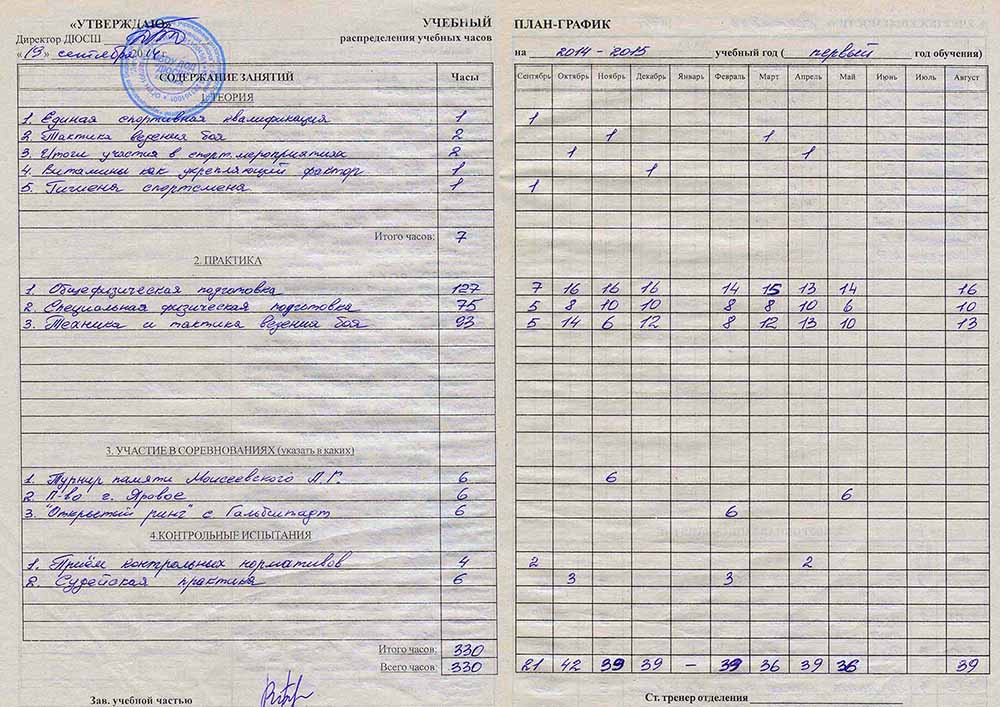 «УТВЕРЖДАЮ» УЧЕБНЫЙ ПЛАН-ГРАФИК
Директор ДЮСШ распределения учебных часов
«13» сентября 2014 г. на 2014 - 2015 учебный год ( первый год обучения)
СОДЕРЖАНИЕ ЗАНЯТИЙ Часы Сентябрь Октябрь Ноябрь Декабрь Январь Февраль Март Апрель Май Июнь Июль Август
1. ТЕОРИЯ
1. Единая спортивная квалификация 1 1
2. Тактика ведения боя 2 1 1
3. Итоги участия в спорт.мероприятиях 2 1 1
4. Витамины как укрепляющий фактор 1 1
5. Гигиена спортсмена 1 1
Итого часов: 7
2. ПРАКТИКА
1. Общефизическая подготовка 127 7 16 16 16 14 15 13 14 16
2. Специальная физическая подготовка 75 5 8 10 10 8 8 10 6 10
3. Техника и тактика ведения боя 93 5 14 6 12 8 12 13 10 13
3. УЧАСТИЕ В СОРЕВНОВАНИЯХ (указать в каких)
1. Турнир памяти Моисеевского Л.Г. 6 6
2. П-во г. Яровое 6 6
3. "Открытый ринг" с Гальбштадт 6 6
4.КОНТРОЛЬНЫЕ ИСПЫТАНИЯ
1. Приём контрольных нормативов 4 2 2
2. Судейская практика 6 3 3
Итого часов: 330
Всего часов: 330 21 42 39 39 – 39 36 39 36 39
Зав. учебной частью Ст. тренер отделения